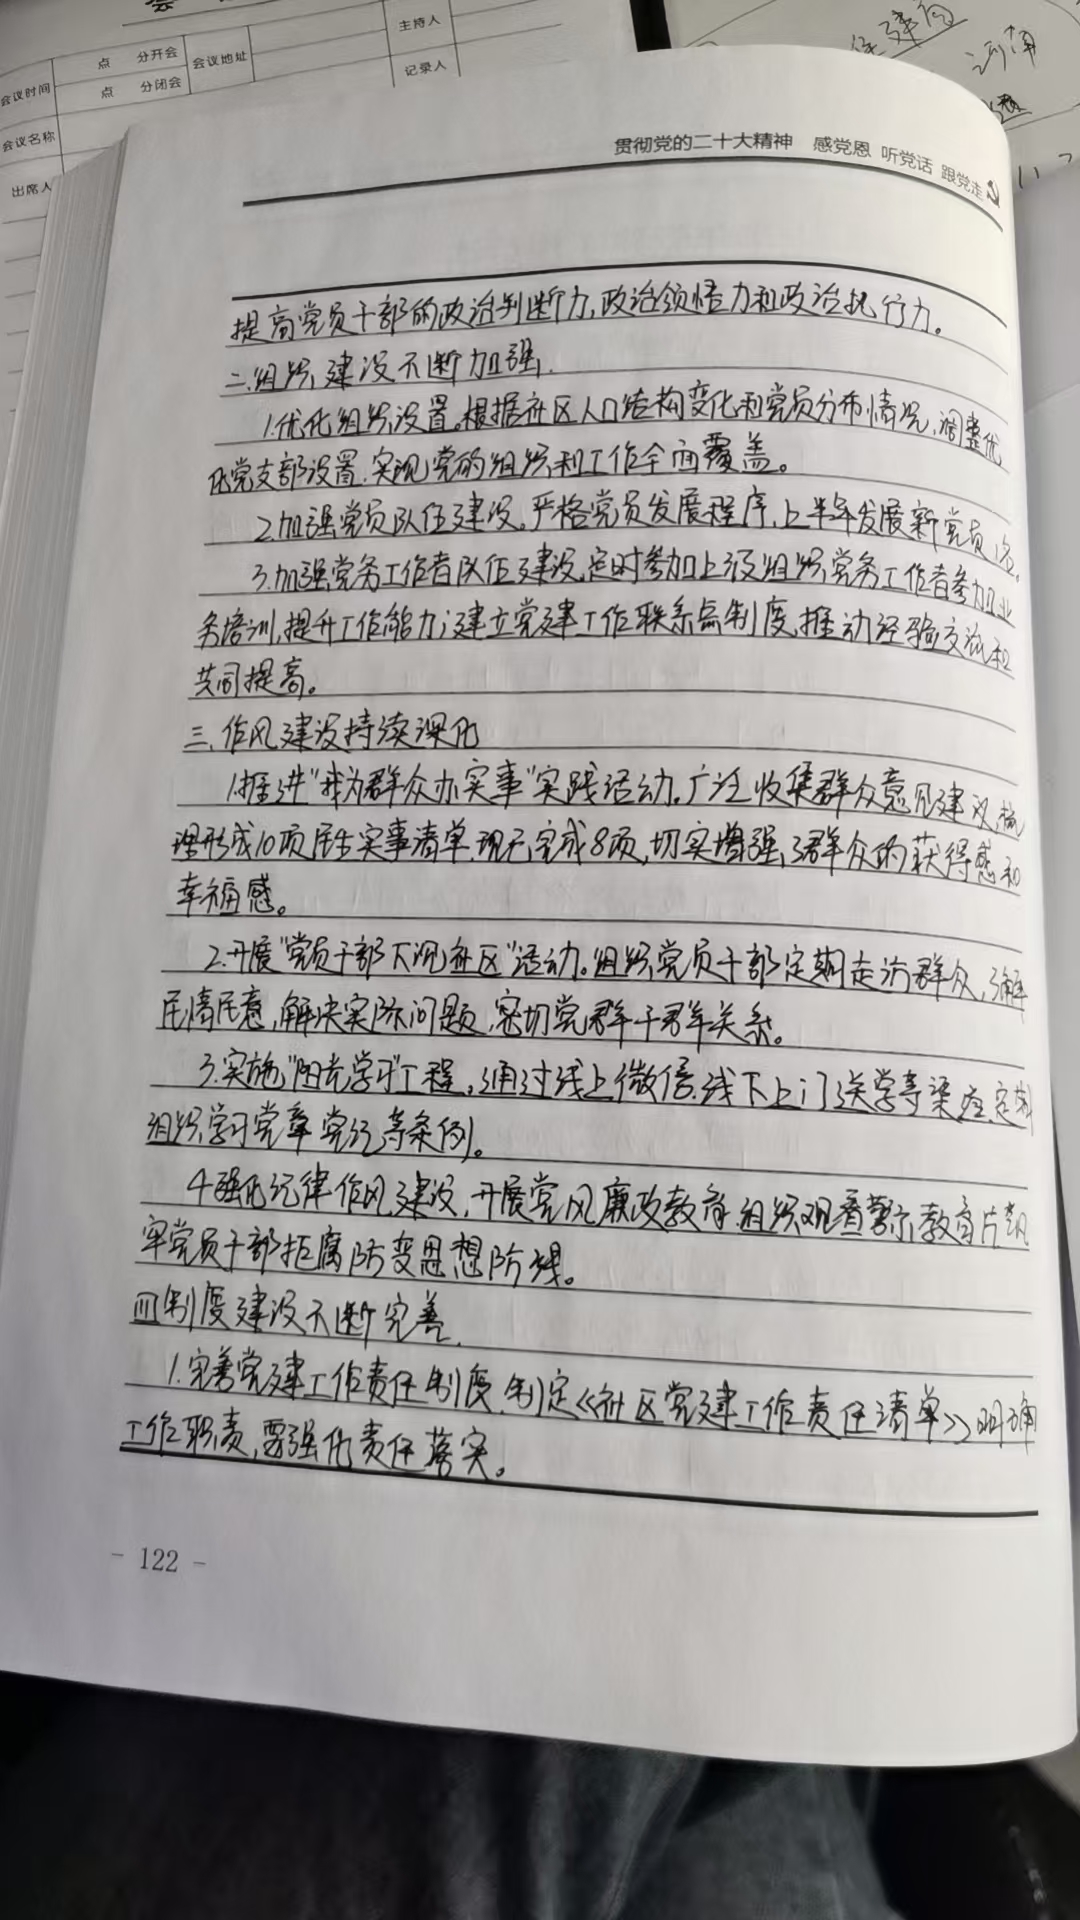 点 分开会
会议时间
点 分闭会
会议地址
主持人
记录人
会议名称
出席人
贯彻党的二十大精神 感党恩 听党话 跟党走
提高党员干部的政治判断力,政治领悟力和政治执行力。
二.组织建设不断加强.
1.优化组织设置。根据社区人口结构变化和党员分布情况,调整优
化党支部设置.实现党的组织和工作全面覆盖。
2.加强党员队伍建设。严格党员发展程序,上半年发展新党员1名。
3.加强党务工作者队伍建设,定时参加上级组织党务工作者参加业
务培训,提升工作能力;建立党建工作联系点制度,推动经验交流和
共同提高。
三、作风建设持续深化
1.推进"我为群众办实事"实践活动。广泛收集群众意见建议,梳
理形成10项民生实事清单.现已完成8项,切实增强了群众的获得感和
幸福感。
2.开展"党员干部下沉社区"活动。组织党员干部定期走访群众,了解
民情民意,解决实际问题,密切党群干群关系。
3.实施"阳光学习"工程,通过线上微信.线下上门送学等渠道.定期
组织学习党章党纪等条例。
4强化纪律作风建设,开展党风廉政教育.组织观看警示教育片筑
牢党员干部拒腐防变思想防线。
四制度建设不断完善.
1.完善党建工作责任制度.制定《社区党建工作责任清单》明确
工作职责,强化责任落实。
- 122 -